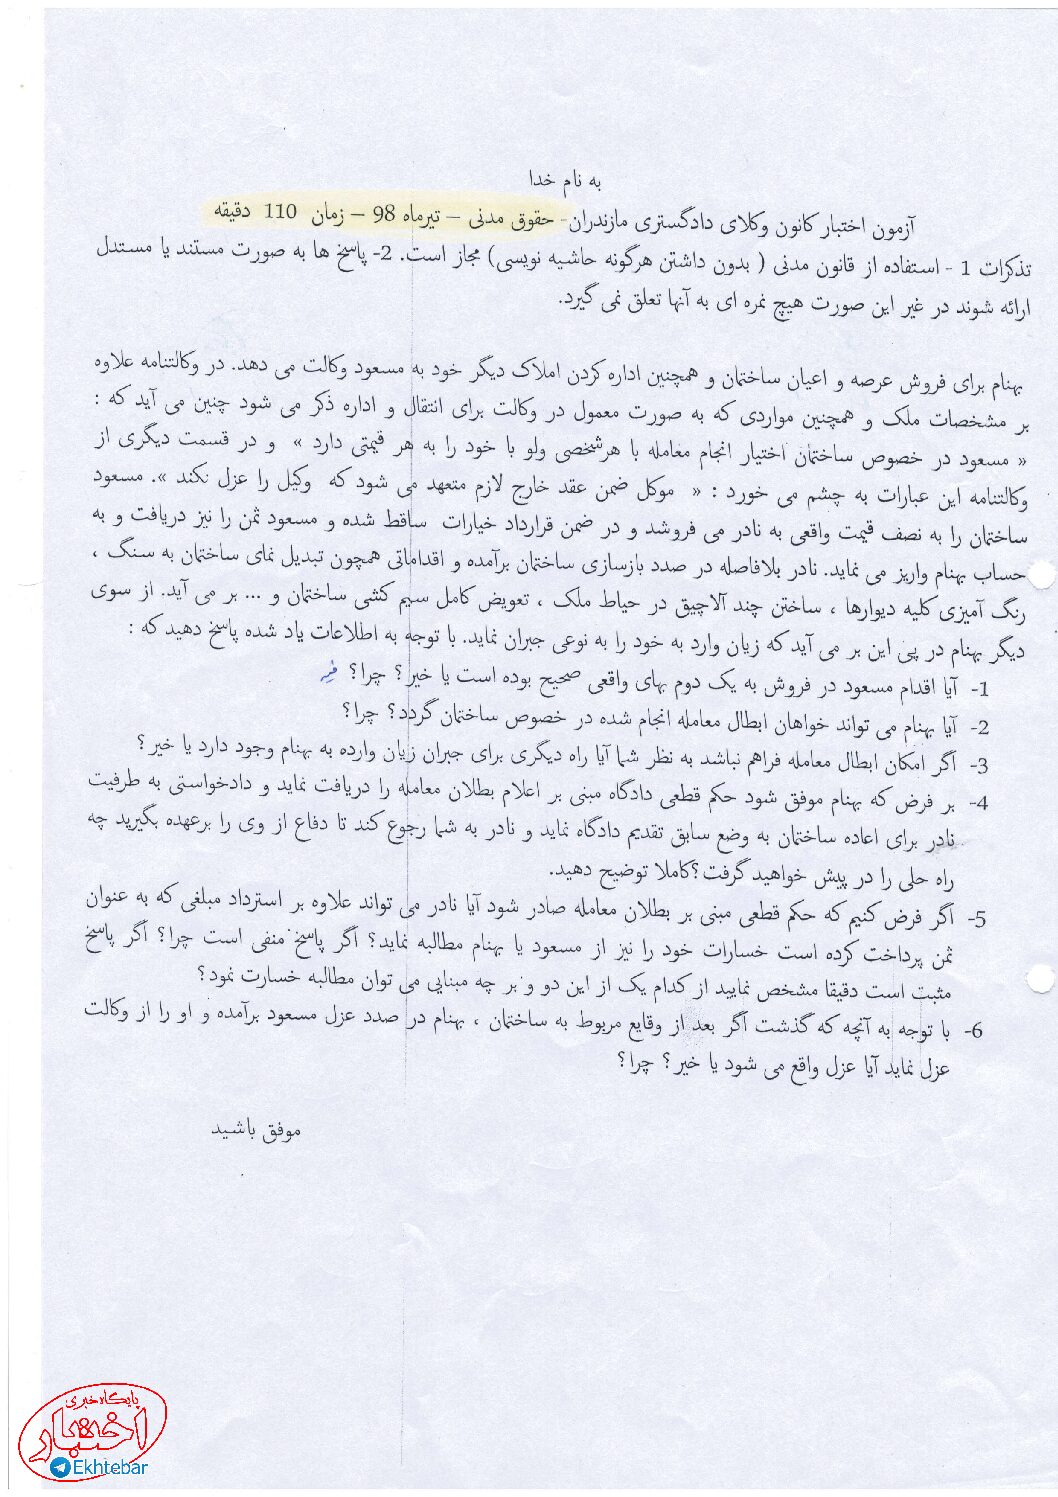 به نام خدا
آزمون اختبار کانون وکلای دادگستری مازندران- حقوق مدنی – تیرماه 98 – زمان 110 دقیقه
تذکرات 1 - استفاده از قانون مدنی ( بدون داشتن هرگونه حاشیه نویسی) مجاز است. 2- پاسخ ها به صورت مستند یا مستدل
ارائه شوند در غیر این صورت هیچ نمره ای به آنها تعلق نمی گیرد.
بهنام برای فروش عرصه و اعیان ساختمان و همچنین اداره کردن املاک دیگر خود به مسعود وکالت می دهد. در وکالتنامه علاوه
بر مشخصات ملک و همچنین مواردی که به صورت معمول در وکالت برای انتقال و اداره ذکر می شود چنین می آید که :
« مسعود در خصوص ساختمان اختیار انجام معامله با هرشخصی ولو با خود را به هر قیمتی دارد » و در قسمت دیگری از
وکالتنامه این عبارات به چشم می خورد : « موکل ضمن عقد خارج لازم متعهد می شود که وکیل را عزل نکند ». مسعود
ساختمان را به نصف قیمت واقعی به نادر می فروشد و در ضمن قرارداد خیارات ساقط شده و مسعود ثمن را نیز دریافت و به
حساب بهنام واریز می نماید. نادر بلافاصله در صدد بازسازی ساختمان برآمده و اقداماتی همچون تبدیل نمای ساختمان به سنگ ،
رنگ آمیزی کلیه دیوارها ، ساختن چند آلاچیق در حیاط ملک ، تعویض کامل سیم کشی ساختمان و ... بر می آید. از سوی
دیگر بهنام در پی این بر می آید که زیان وارد به خود را به نوعی جبران نماید. با توجه به اطلاعات یاد شده پاسخ دهید که :
1- آیا اقدام مسعود در فروش به یک دوم بهای واقعی صحیح بوده است یا خیر؟ چرا؟
2- آیا بهنام می تواند خواهان ابطال معامله انجام شده در خصوص ساختمان گردد؟ چرا؟
3- اگر امکان ابطال معامله فراهم نباشد به نظر شما آیا راه دیگری برای جبران زیان وارده به بهنام وجود دارد یا خیر؟
4- بر فرض که بهنام موفق شود حکم قطعی دادگاه مبنی بر اعلام بطلان معامله را دریافت نماید و دادخواستی به طرفیت
نادر برای اعاده ساختمان به وضع سابق تقدیم دادگاه نماید و نادر به شما رجوع کند تا دفاع از وی را برعهده بگیرید چه
راه حلی را در پیش خواهید گرفت؟کاملا توضیح دهید.
5- اگر فرض کنیم که حکم قطعی مبنی بر بطلان معامله صادر شود آیا نادر می تواند علاوه بر استرداد مبلغی که به عنوان
ثمن پرداخت کرده است خسارات خود را نیز از مسعود یا بهنام مطالبه نماید؟ اگر پاسخ منفی است چرا؟ اگر پاسخ
مثبت است دقیقا مشخص نمایید از کدام یک از این دو و بر چه مبنایی می توان مطالبه خسارت نمود؟
6- با توجه به آنچه که گذشت اگر بعد از وقایع مربوط به ساختمان ، بهنام در صدد عزل مسعود برآمده و او را از وکالت
عزل نماید آیا عزل واقع می شود یا خیر؟ چرا؟
موفق باشید
پایگاه خبری
اختبار
Ekhtebar